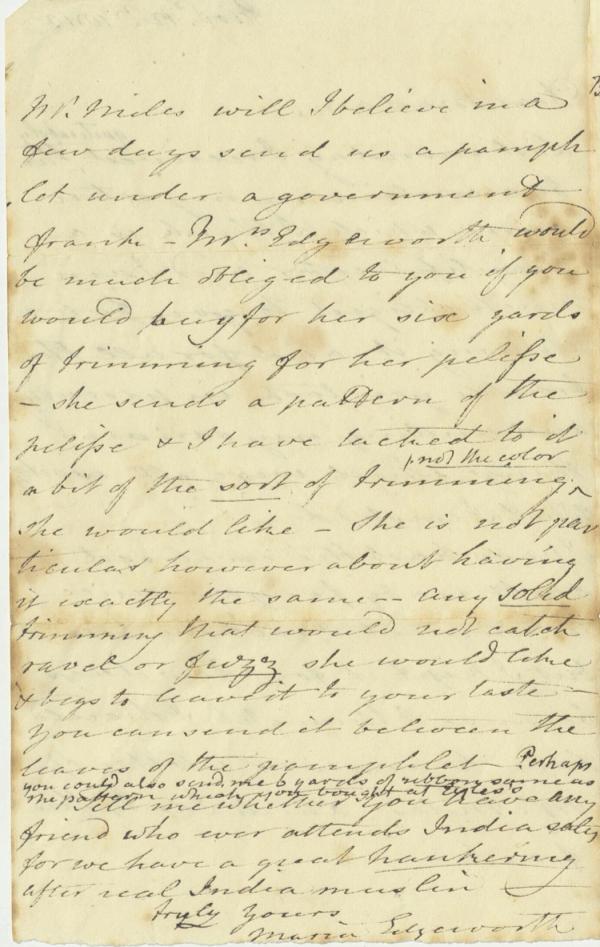 Mr. Miles will I believe in a
few days send us a pamph
let under a government
frank – Mrs Edgeworth would
be much obliged to you if you
would buy for her six yards
of trimming for her pelisse
– she sends a pattern of the
pelisse & I have tacked to it
not the color
a bit of the sort of trimming ^
she would like – She is not par
ticular however about having
it exactly the same – – any solid
trimming that would not catch
ravel or fuzz she would like
& begs to leave it to your taste –
you can send it between the
leaves of the pamphlet Perhaps
you could also send me 6 yards of ribbon same as
the pattern which you bought at
Tell me whether you have any
friend who ever attends India sales
for we have a great hankering
after real India muslin
truly yours
Maria Edgeworth